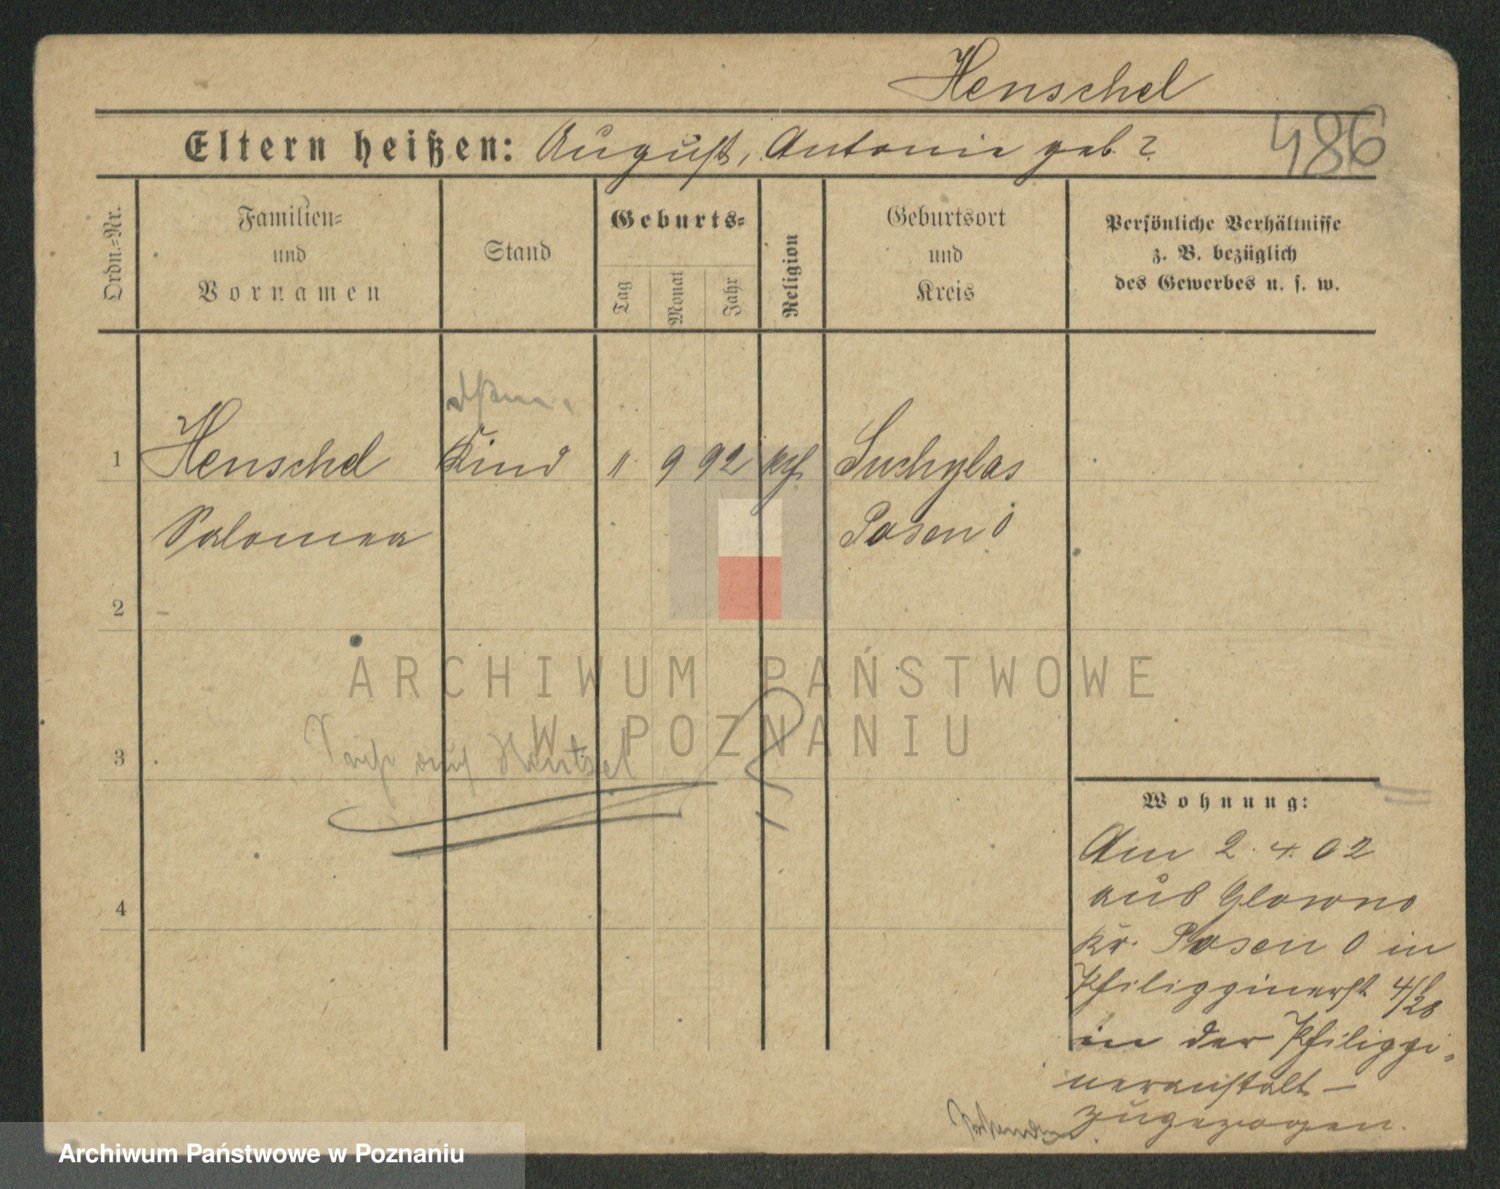 Henschel
486
Eltern heißen: August, Antonie geb. ?
Ordn.-Nr.
Familien-
und
Vornamen
Stand
Geburts-
Tag
Monat
Jahr
Religion
Geburtsort
und
Kreis
Persönliche Verhältnisse
z. B. bezüglich
des Gewerbes u. s. w.
1 Henschel Kind 11 9 92 kath Suchylas
Salomea Posen O
2
ARCHIWUM PAŃSTWOWE
W POZNANIU
3 auf Hentsel
Wohnung:
Am 2.4.02
aus Glowno
Kr. Posen O in
Philippinerst 4/
in der Philippi-
neranstalt –
zugezogen.
4
Archiwum Państwowe w Poznaniu